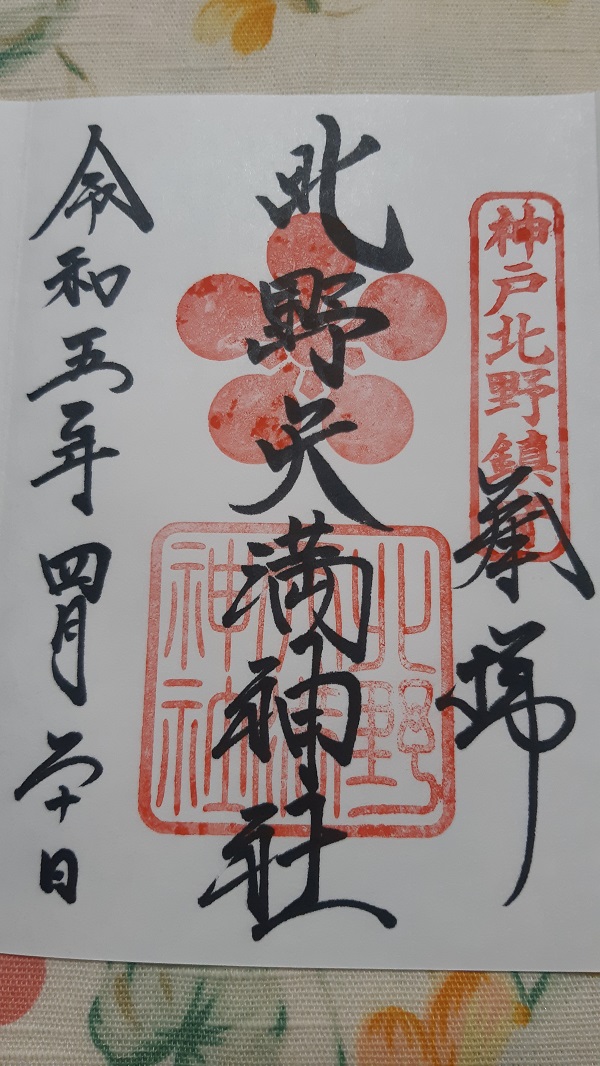 神戸北野鎮
奉拝
北野天満神社
北野天満神社
令和五年四月二十日